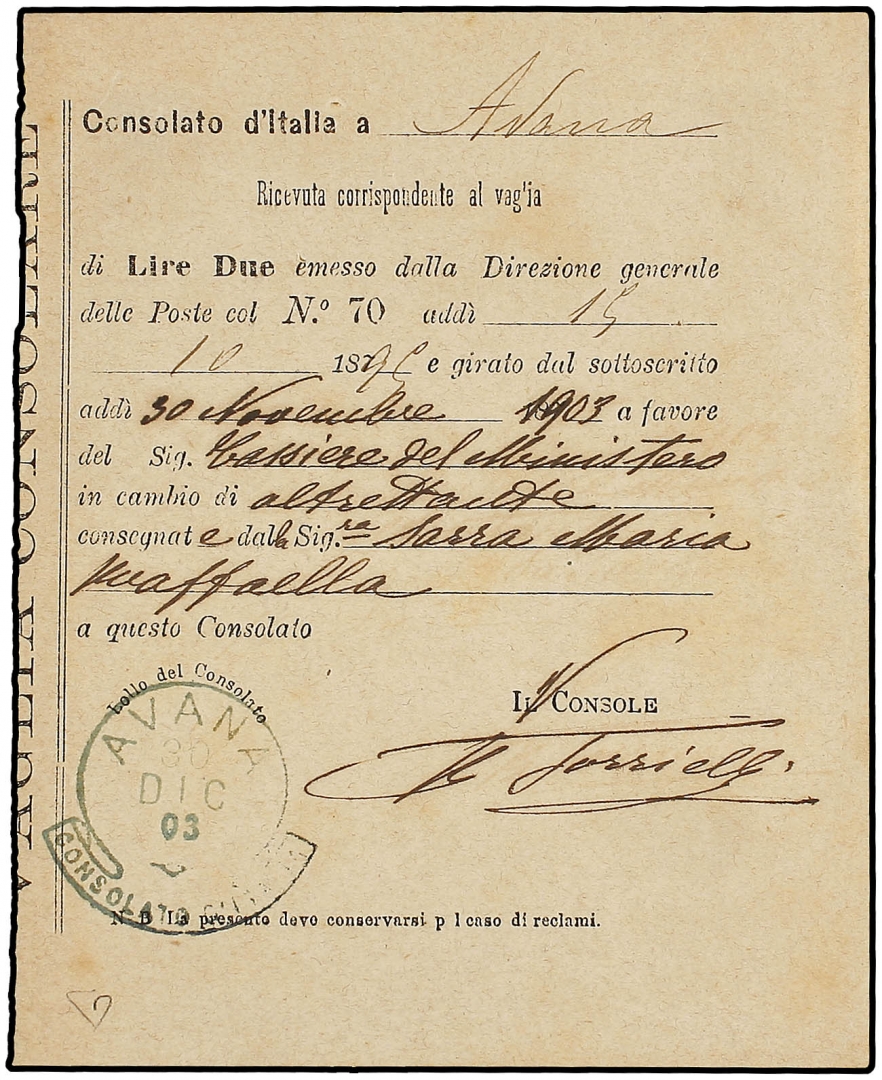 VAGLIA CONSOLARE
Consolato d'Italia a Avana
Ricevuta corrispondente al vaglia
di Lire Due emesso dalla Direzione generale
delle Poste col N.º 70 addì 15
10 1895 e girato dal sottoscritto
addì 30 Novembre 1903 a favore
del Sig. Cassiere del Ministero
in cambio di altrettante
consegnate dalla Sig.ra Sarra Maria
Raffaella
a questo Consolato
Bollo del Consolato
IL CONSOLE
AVANA
30
DIC
03
CONSOLATO D'ITALIA
N B La presente deve conservarsi p l caso di reclami.